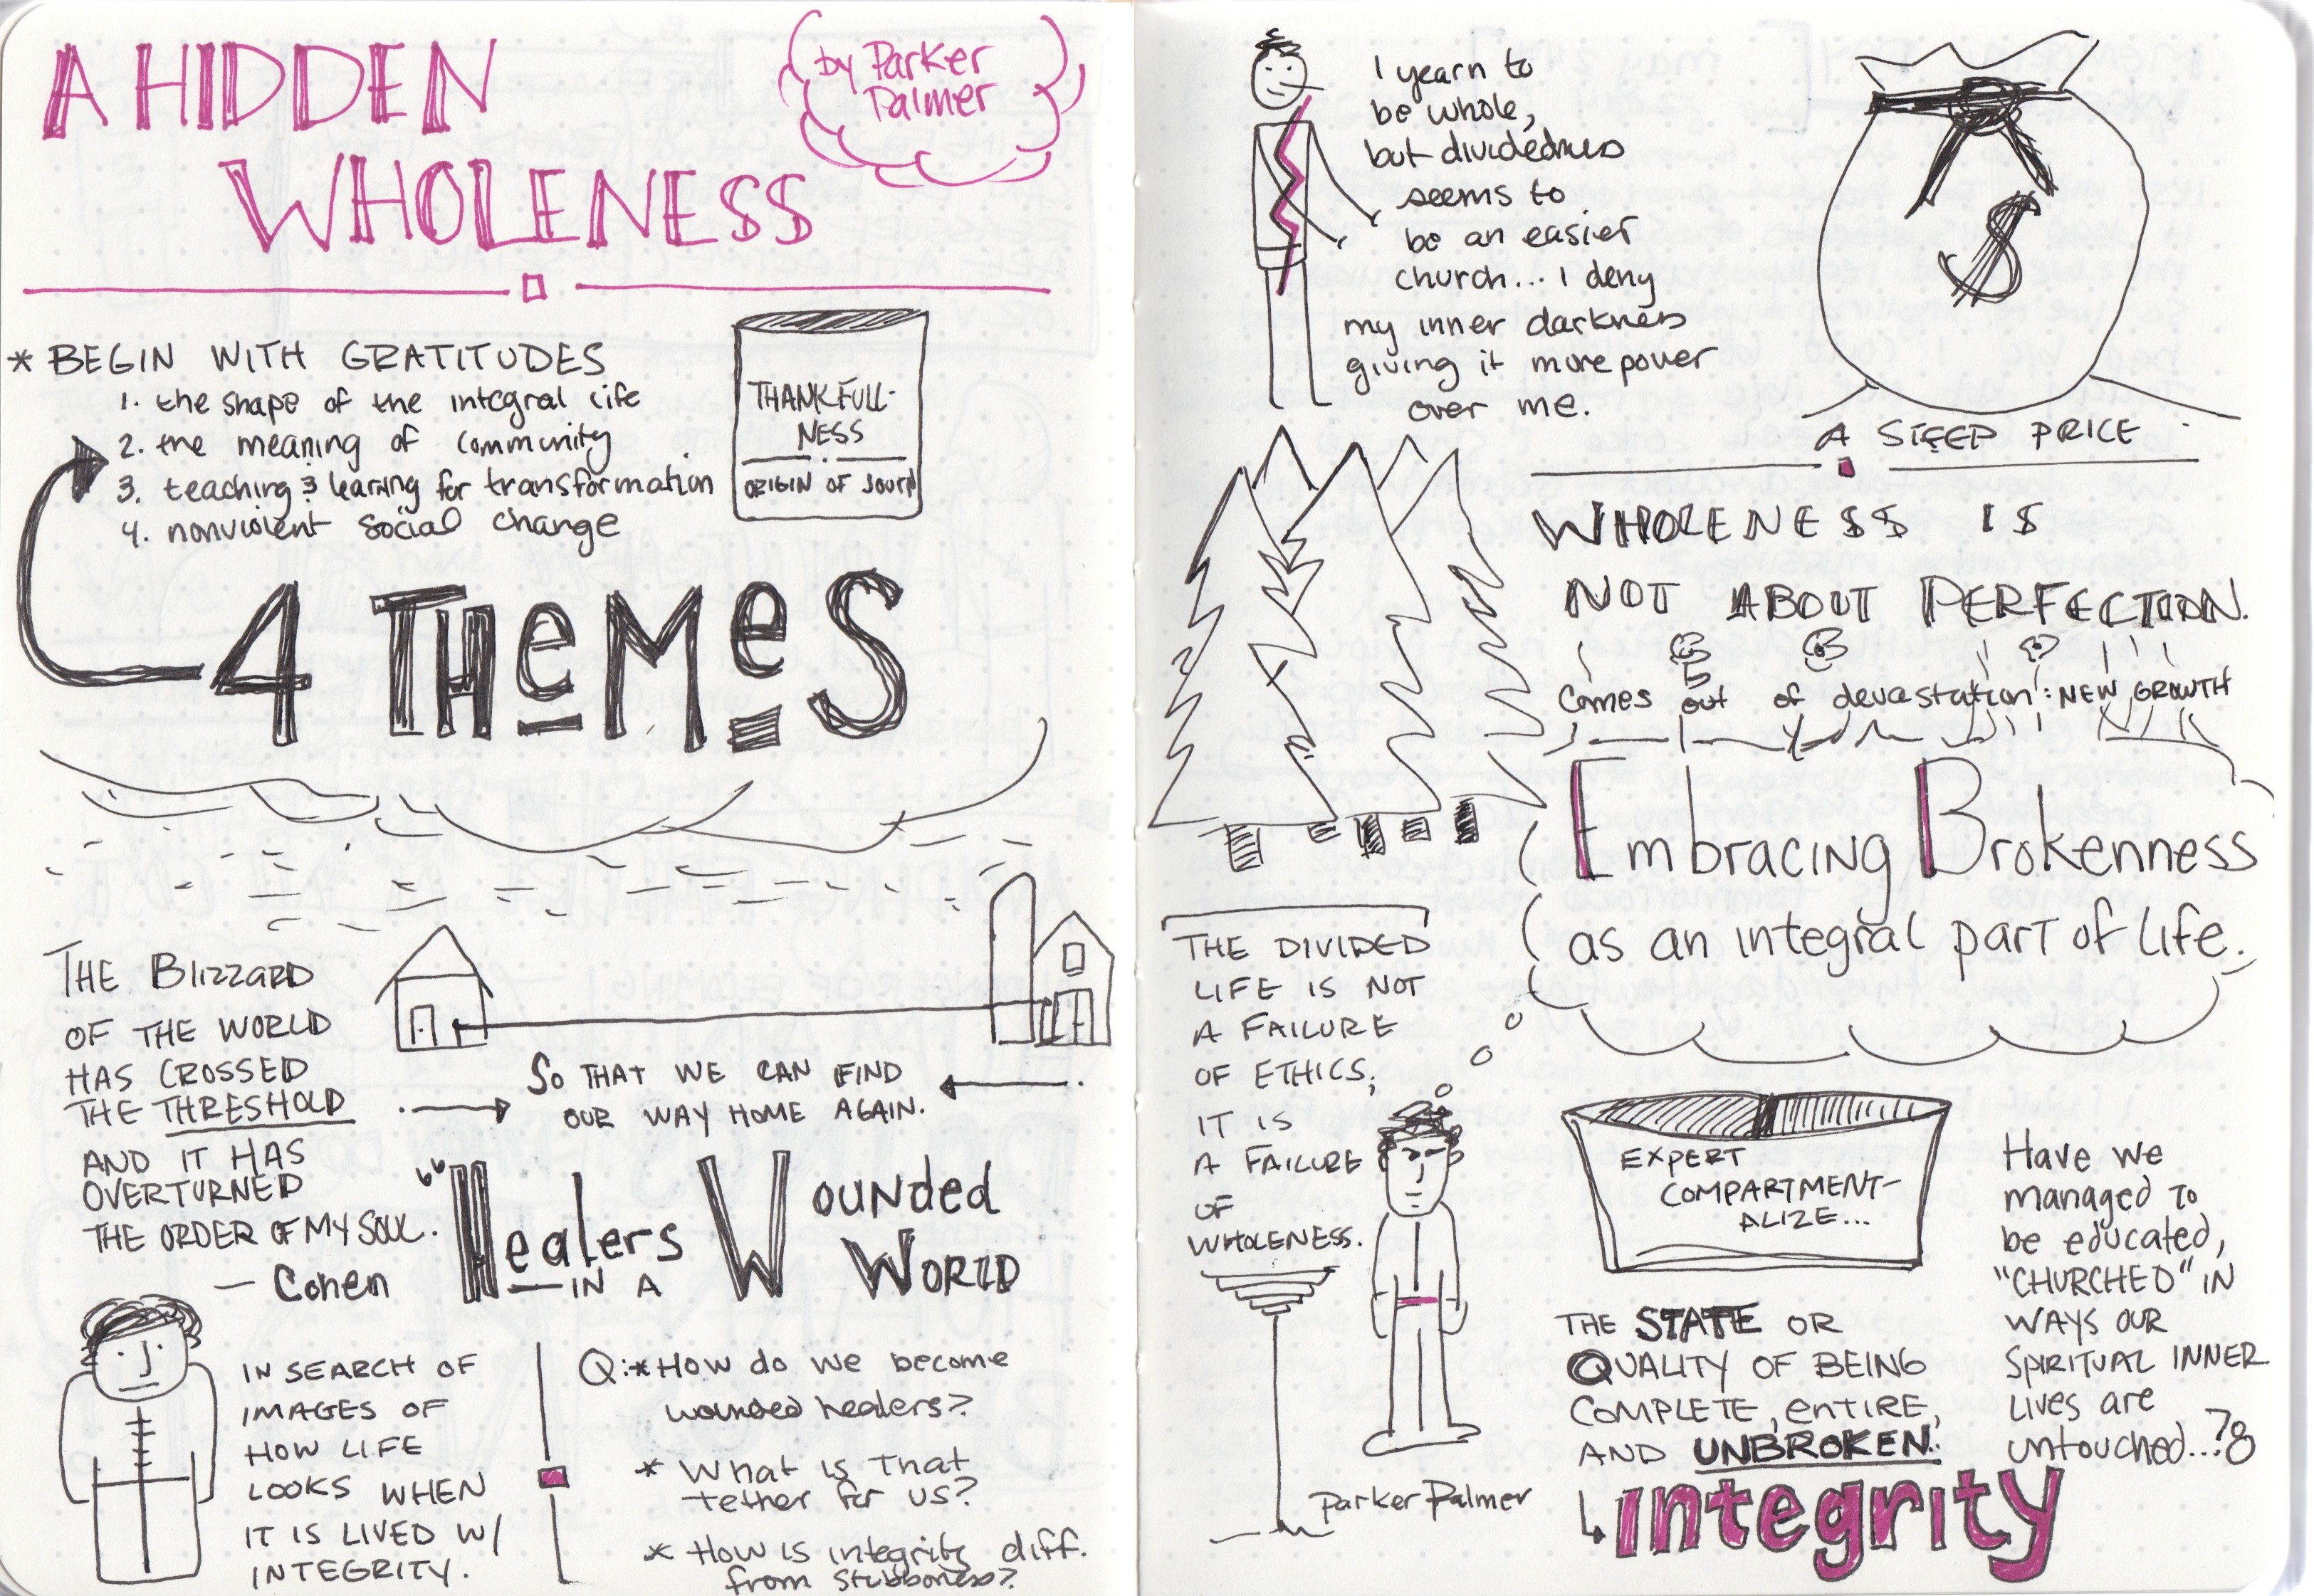 A HIDDEN
WHOLENESS
by Parker
Palmer
* BEGIN WITH GRATITUDES
1. the shape of the integral life
2. the meaning of community
3. teaching & learning for transformation
4. nonviolent social change
THANKFULL-
NESS
ORIGIN OF JOURN
4 THeMeS
THE Blizzard
OF THE WORLD
HAS CROSSED
THE THRESHOLD
AND IT HAS
OVERTURNED
THE ORDER OF MY SOUL.
— Cohen
SO THAT WE CAN FIND
OUR WAY HOME AGAIN.
"Healers
IN A
Wounded
WORLD
IN SEARCH OF
IMAGES OF
HOW LIFE
LOOKS WHEN
IT IS LIVED W/
INTEGRITY.
Q:* How do we become
wounded healers?
* What is that
tether for us?
* How is integrity diff.
from stubborness?
I yearn to
be whole,
but dividedness
seems to
be an easier
church... I deny
my inner darkness
giving it more power
over me.
$
A STEEP PRICE
WHOLENESS IS
NOT ABOUT PERFECTION.
Comes out of devastation: NEW GROWTH
Embracing Brokenness
as an integral part of life.
THE DIVIDED
LIFE IS NOT
A FAILURE
OF ETHICS;
IT IS
A FAILURE
OF
WHOLENESS.
Parker Palmer
EXPERT
COMPARTMENT-
ALIZE...
THE STATE OR
QUALITY OF BEING
COMPLETE, entire,
AND UNBROKEN.
integrity
Have we
managed to
be educated,
"CHURCHED" IN
WAYS OUR
SPIRITUAL INNER
Lives are
untouched...?